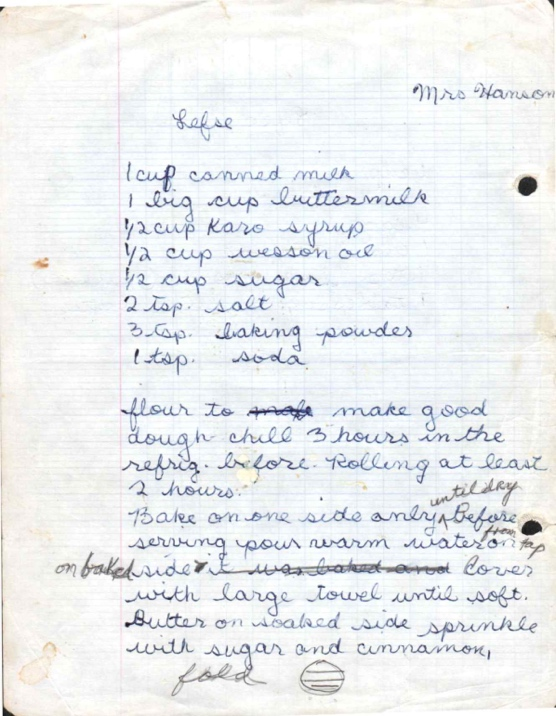 Mrs Hanson
Lefse
1 cup canned milk
1 big cup buttermilk
1/2 cup Karo syrup
1/2 cup wesson oil
1/2 cup sugar
2 tsp. salt
3 tsp. baking powder
1 tsp. soda
flour to make good
dough chill 3 hours in the
refrig. before. Rolling at least
2 hours.
Bake on one side only until dry Before
serving pour warm water from tap on
on baked side it was baked and Cover
with large towel until soft.
Butter on soaked side sprinkle
with sugar and cinnamon,
fold